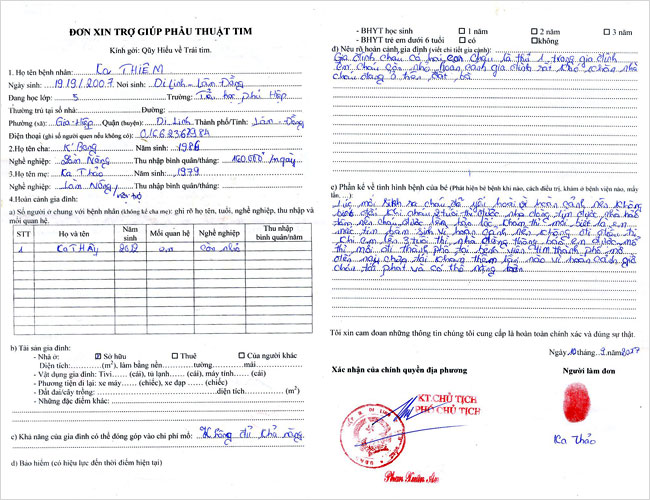 ĐƠN XIN TRỢ GIÚP PHẪU THUẬT TIM
Kính gởi: Qũy Hiểu về Trái tim.
1. Họ tên bệnh nhân: Ka THIÊM
Ngày sinh: 19/9/2007. Nơi sinh: Di Linh - Lâm Đồng
Đang học lớp: 5 Trường: Tiểu học phú Hiệp
Thường trú tại số nhà: Đường:
Phường (xã): Gia-Hiệp Quận (huyện): Di Linh Thành phố/Tỉnh: Lâm-Đồng
Điện thoại (ghi số người quen nếu không có):
2.Họ tên cha: K' Bang Năm sinh: 1986
Nghề nghiệp: Làm Nông Thu nhập bình quân/ngày: 160.000đ /ngày
3.Họ tên mẹ: Ka Thảo Năm sinh: 1979
Nghề nghiệp: Làm Nông / nội trợ Thu nhập bình quân/ngày:
4.Hoàn cảnh gia đình:
a) Số người ở chung với bệnh nhân (không kể cha mẹ): ghi rõ họ tên, tuổi, nghề nghiệp, thu nhập và
mối quan hệ.
STT Họ và tên Năm sinh Mối quan hệ Nghề nghiệp Thu nhập bình quân/năm
1 Ka THÂY 2012 em Còn nhỏ
b) Tài sản gia đình:
- Nhà ở: Sở hữu Thuê Của người khác
Diện tích: (m²), làm bằng nền tường mái
- Vật dụng gia đình: Tivi (cái), tủ lạnh (cái), máy tính (cái)
- Phương tiện đi lại: xe máy (chiếc), xe đạp (chiếc)
- Đất đai/cây trồng: diện tích (m²)
- Những đặc điểm khác:
c) Khả năng của gia đình có thể đóng góp vào chi phí mổ: Không đủ khả năng
d) Bảo hiểm (có hiệu lực đến thời điểm hiện tại)
- BHYT học sinh 1 năm 2 năm 3 năm
- BHYT trẻ em dưới 6 tuổi có không
đ) Nêu rõ hoàn cảnh gia đình (viết chi tiết gia cảnh):
Gia đình cháu có hai con cháu là thứ 1 trong gia đình
em cháu còn nhỏ hoàn cảnh gia đình rất khó khăn nhà
cháu đang ở
e) Phần kể về tình hình bệnh của bé (Phát hiện bé bệnh khi nào, cách điều trị, khám ở bệnh viện nào, mấy
lần. ...):
Lúc mới sinh ra cháu đã yếu hoài vì hoàn cảnh nên không
biết Khi cháu 2 tuổi thì được nhà
em
tim bẩm sinh vì hoàn cảnh nên không đi
Khi em lên 3 tuổi thì nhà em được mổ
thì mới đi thành phố tại bệnh viện TIM thành phố mổ
đến nay chưa tái khám thêm lần nào vì hoàn cảnh giờ
cháu tái phát và có thể nặng hơn
Tôi xin cam đoan những thông tin chúng tôi cung cấp là hoàn toàn chính xác và đúng sự thật.
Ngày 10 tháng 9 năm 2017
Xác nhận của chính quyền địa phương Người làm đơn
KT.CHỦ TỊCH
PHÓ CHỦ TỊCH
Phan Xuân
Ka Thảo